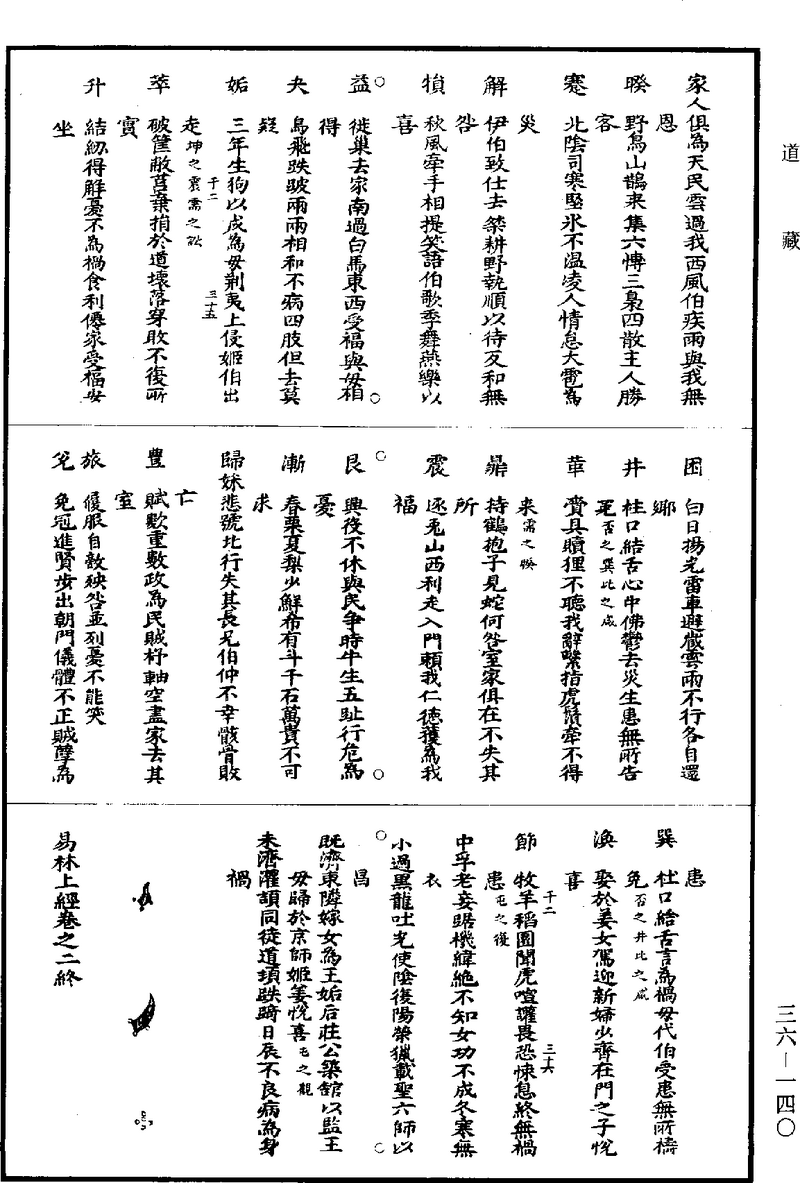 道藏
家人俱為天民雲過我西風伯疾雨與我無
恩
睽野鳥山鵲來集六愽三梟四散主人勝
客
蹇北陰司寒堅氷不溫凌人情息大雹為
災
解伊伯致仕去桀耕野執順以待反和無
咎
損秋風牽手相提笑語伯歌季舞燕樂以
喜
益徙巢去家南過白馬東西受福與毋相
得
夬鳥飛跌跛兩兩相和不病四肢但去莫
疑
姤三年生狗以成為毋剥夷上侵姬伯出
走坤之震需之訟
于二
三十五
萃破筐敝筥棄捐於道壞落穿敗不復所
寳
升結紉得解憂不為禍食利僊家受福安
坐
困白日揚光雷車避藏雲雨不行各自還
鄉
井杜口結舌心中怫鬱去災生患無所告
寃否之巽比之咸
革賫貝贖狸不聽我辭繫捂虎鬚牽不得
來需之睽
鼎持鶴抱子見蛇何咎室家俱在不失其
所
震逐兎山西利走入門頼我仁徳獲為我
福
艮興役不休與民爭時牛生五趾行危為
憂
漸春栗夏梨少鮮希有斗千石萬貴不可
求
歸妹悲號北行失其長兄伯仲不幸骸骨敗
亡
豐賦歛重數政為民賊杼軸空盡家去其
室
旅僾服自敵殃咎並列憂不能笑
兊免冠進賢步出朝門儀體不正賊孽為
患
巽杜口結舌言為禍毋代伯受患無所禱
免否之井比之咸
渙娶於姜女駕迎新婦少齊在門之子悅
喜
節牧羊稻園聞虎喧讙畏恐悚息終無禍
患屯之復
于二
三十六
中孚老妾踞機緯絶不知女功不成冬寒無
衣
小過黒龍吐光使陰復陽榮獵載聖六師以
昌
既濟東隣嫁女為王妬后莊公築舘以監王
毋歸於京師姬姜悅喜屯之觀
未濟濯頭同徒道項跌踦日辰不良病為身
禍
易林上經卷之二終
三六—一四〇